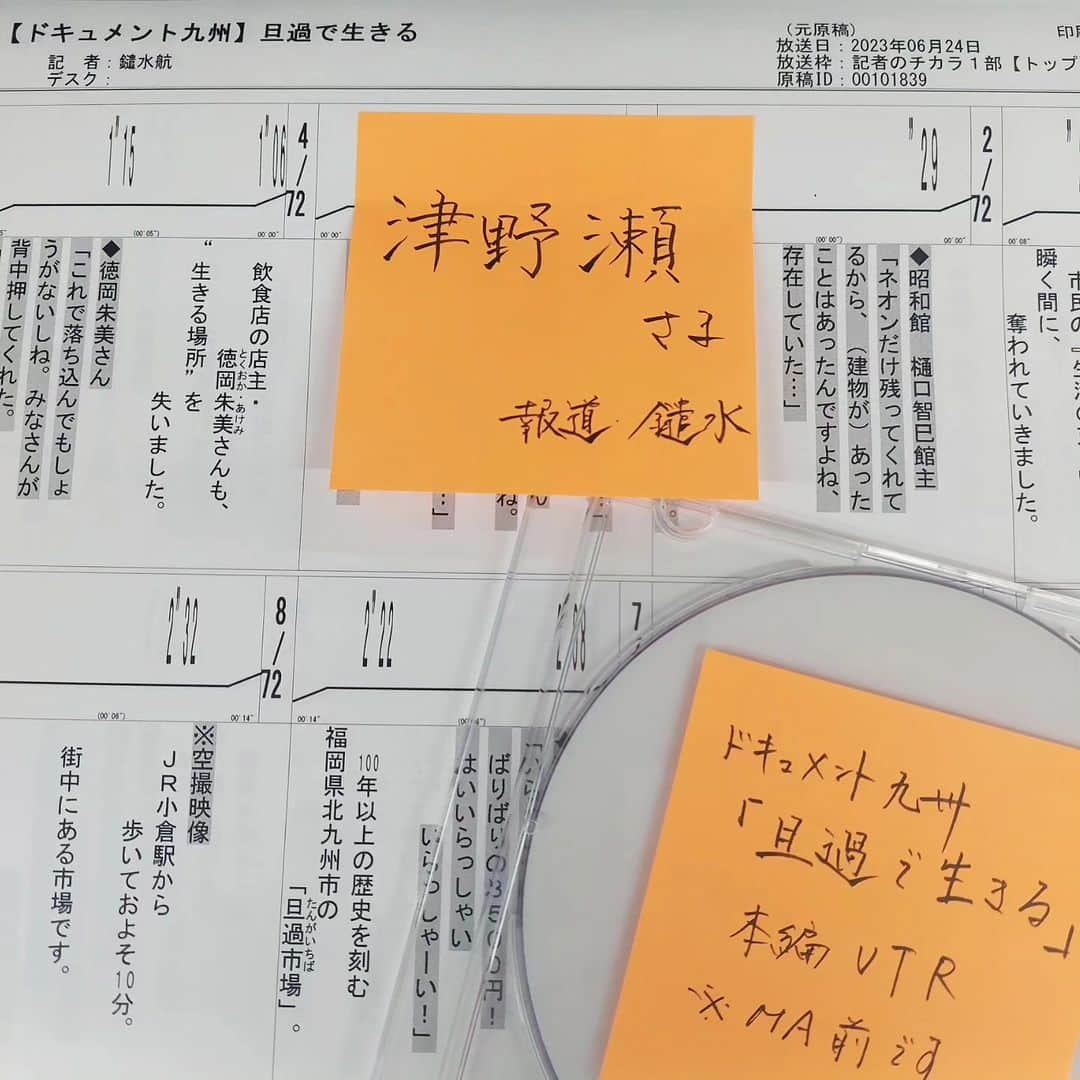 【ドキュメント九州】旦過で生きる
記　者：鑓水航
デスク：
（元原稿）
放送日：2023年06月24日
放送枠：記者のチカラ１部【トップ
原稿ID：00101839
2/72
"29
(00'00")
00'00"
00'08"
瞬く間に、
奪われていきました。
◆昭和館　樋口智巳館主
「ネオンだけ残ってくれて
るから、（建物が）あった
ことはあったんですよね、
存在していた…」
4/72
1"06
1"15
(00'05")
00'00"
飲食店の店主・
徳岡朱美さんも、
とくおか・あけみ
“生きる場所”を
失いました。
◆徳岡朱美さん
「これで落ち込んでもしょ
うがないしね。みなさんが
背中押してくれた。
津野瀬
さま
報道・鑓水
7/
2"22
00'14"
ばりばりの3500円！
はいいらっしゃい
いらっしゃーい！」
100年以上の歴史を刻む
福岡県北九州市の
「旦過市場」。
たんがいちば
8/72
2"32
(00'06")
00'14"
※空撮映像
ＪＲ小倉駅から
歩いておよそ10分。
街中にある市場です。
ドキュメント九州
「旦過で生きる」
本編VTR
※MA前です